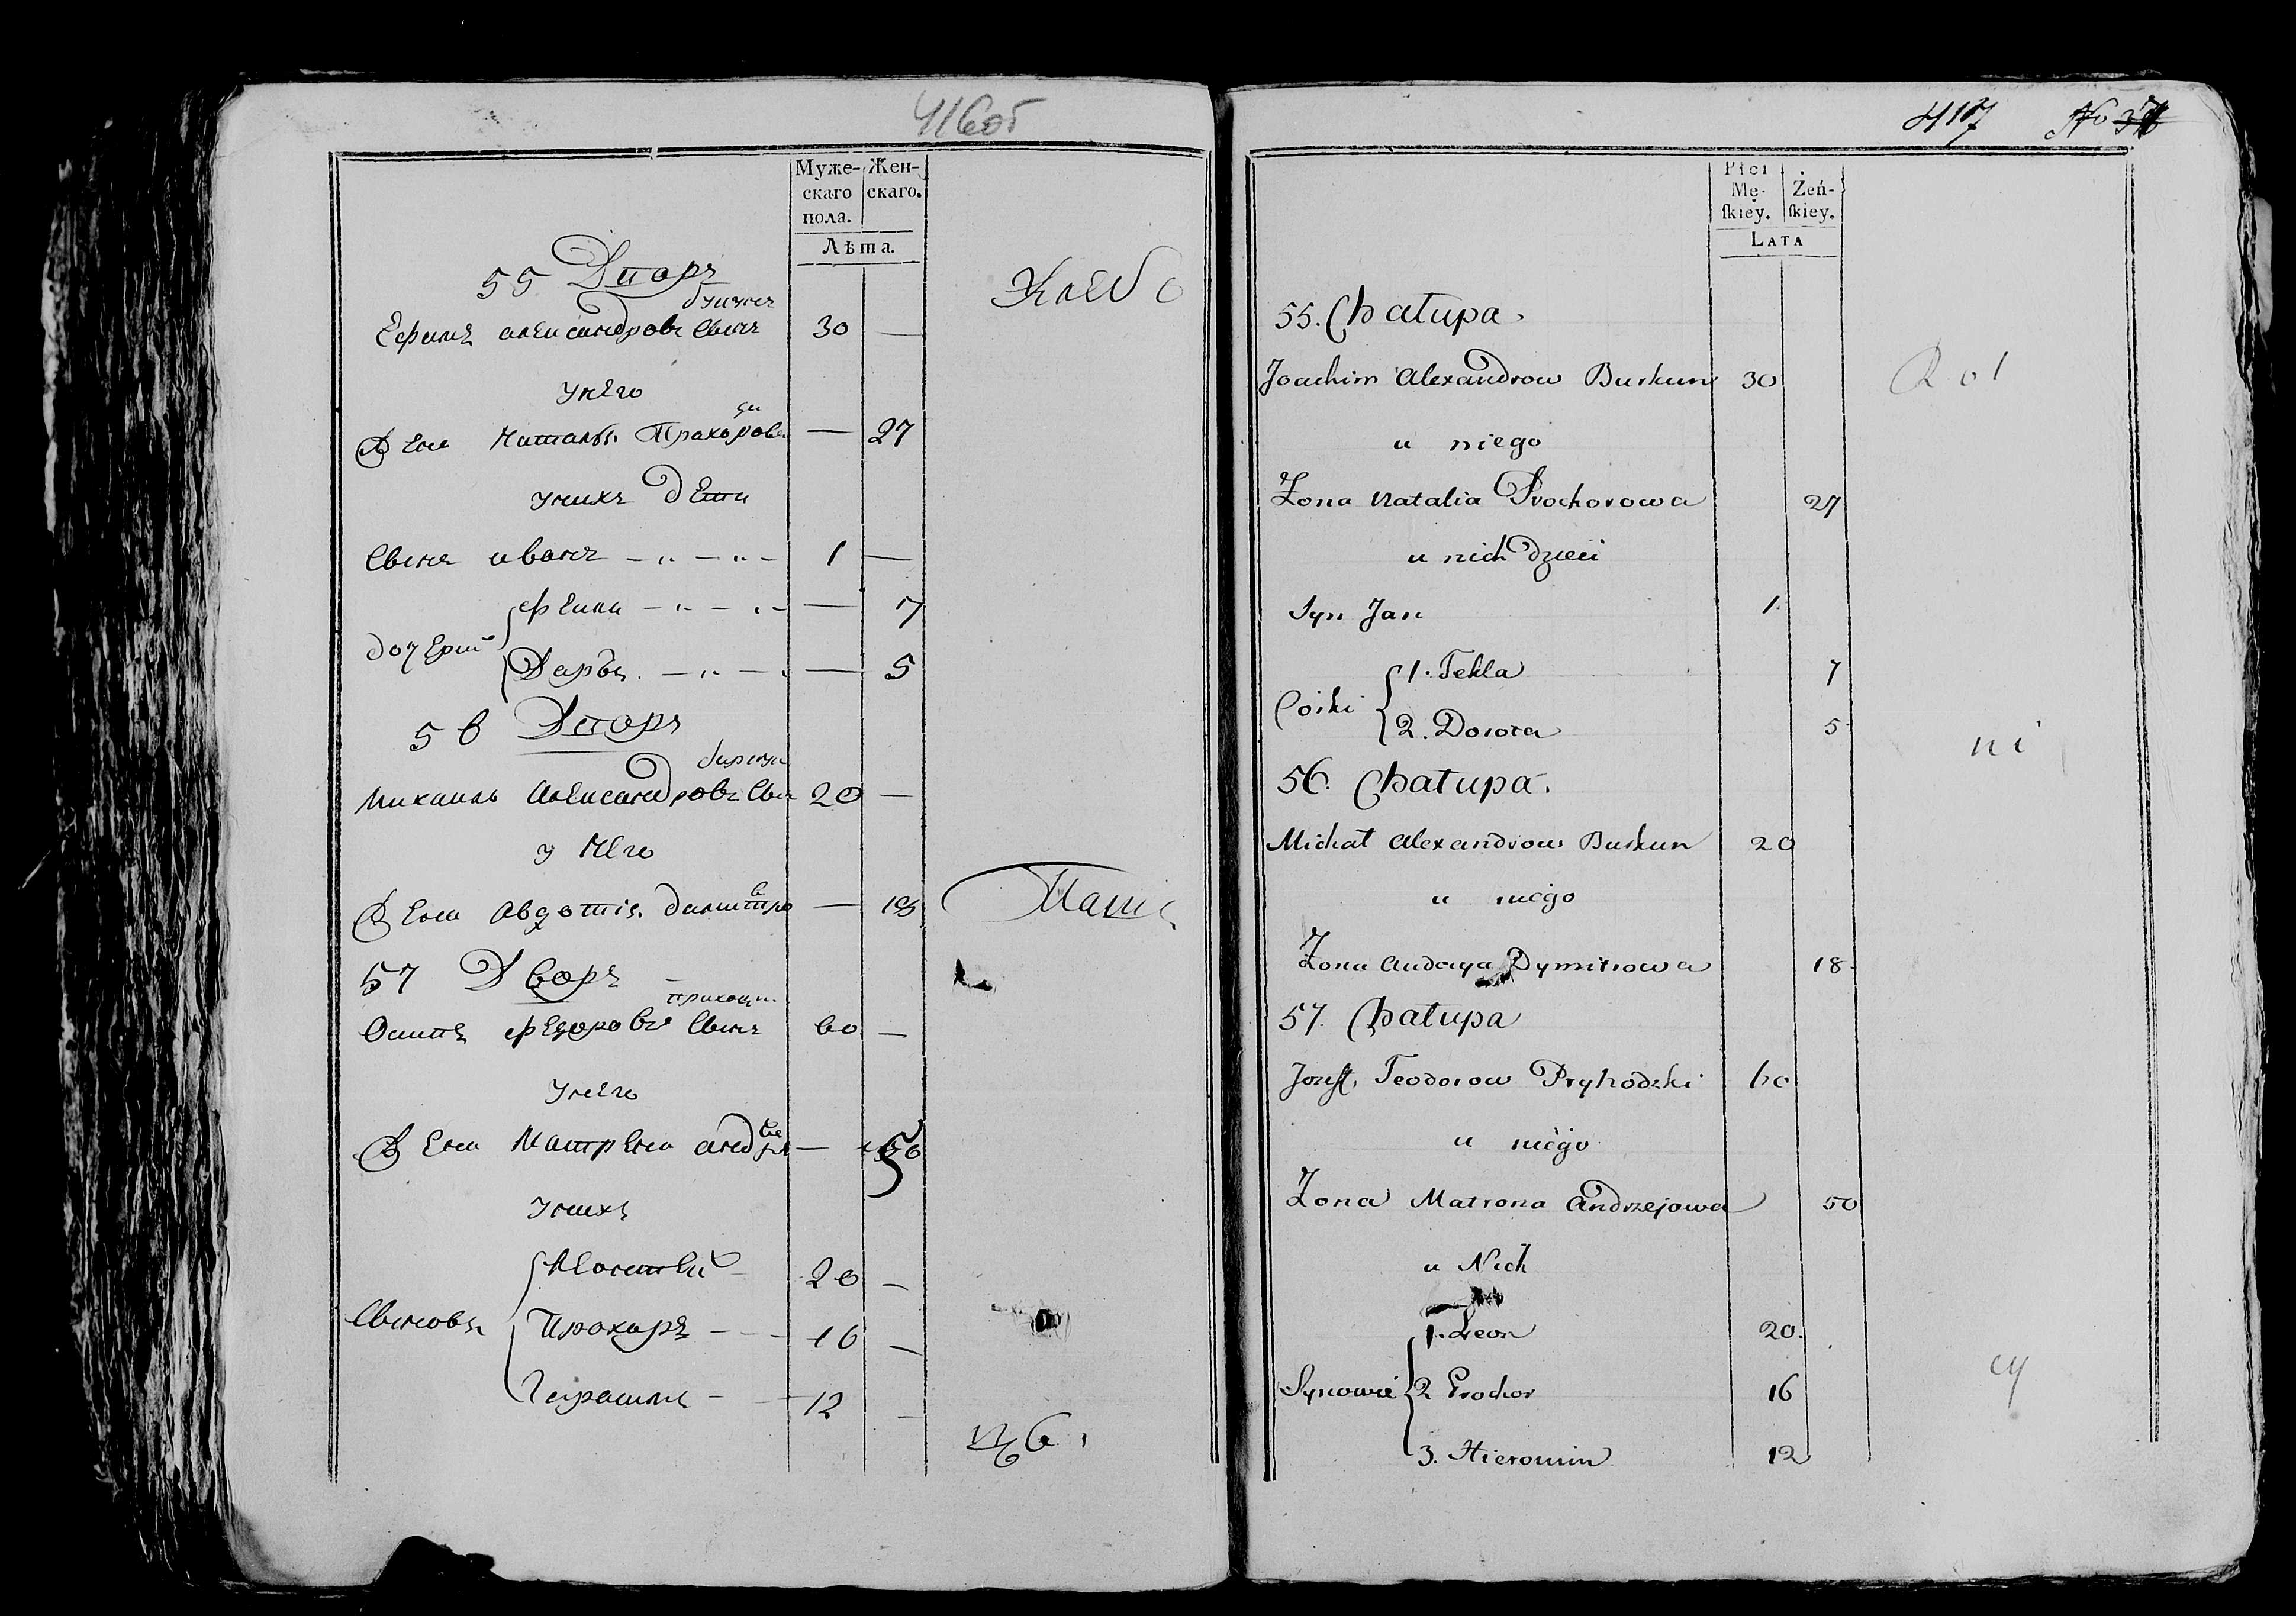 416об
Муже-
скаго
пола.
Жен-
скаго.
Лѣта.
55 Дворъ
Ефимъ александровъ Сынъ 30 —
Хлебо
унего
Жена Наталья Прахорова — 27
унихъ дети
Сынъ иванъ — „ — „ — 1 —
дочерий
Фекла — „ — „ — — 7
Дарья — „ — — 5
56 Дворъ
Михаилъ Александровъ Сын 20 —
у него
Жена Авдотiя димитро — 18
Паши
57 Дворъ
Осипъ федоровъ Сынъ 60 —
унего
Жена Матрена анд — 50
унихъ
Сыновья
Леонтей — 20 —
Прохоръ — - - 16 —
Герасимъ - — 12 —
417 No
Płci
Mę-
ſkiey.
Żeń-
ſkiey.
LATA
55. Chałupa.
Joachim Alexandrow Burkun 30
Rol
u niego
Żona Natalia Prochorowa 27
u nich dzieci
Syn Jan 1.
Corki
1. Tekla 7
2. Dorota 5.
ni
56. Chałupa.
Michał Alexandrow Burkun 20
u niego
Żona Dymitrowa 18.
57. Chałupa
Jozef, Teodorow Pryhodzki 60
u niego
Żona Matrona Andrzejowa 50
u Nich
Synowie
1. Leon 20.
2 Prochor 16
cy
3. Hieronim 12